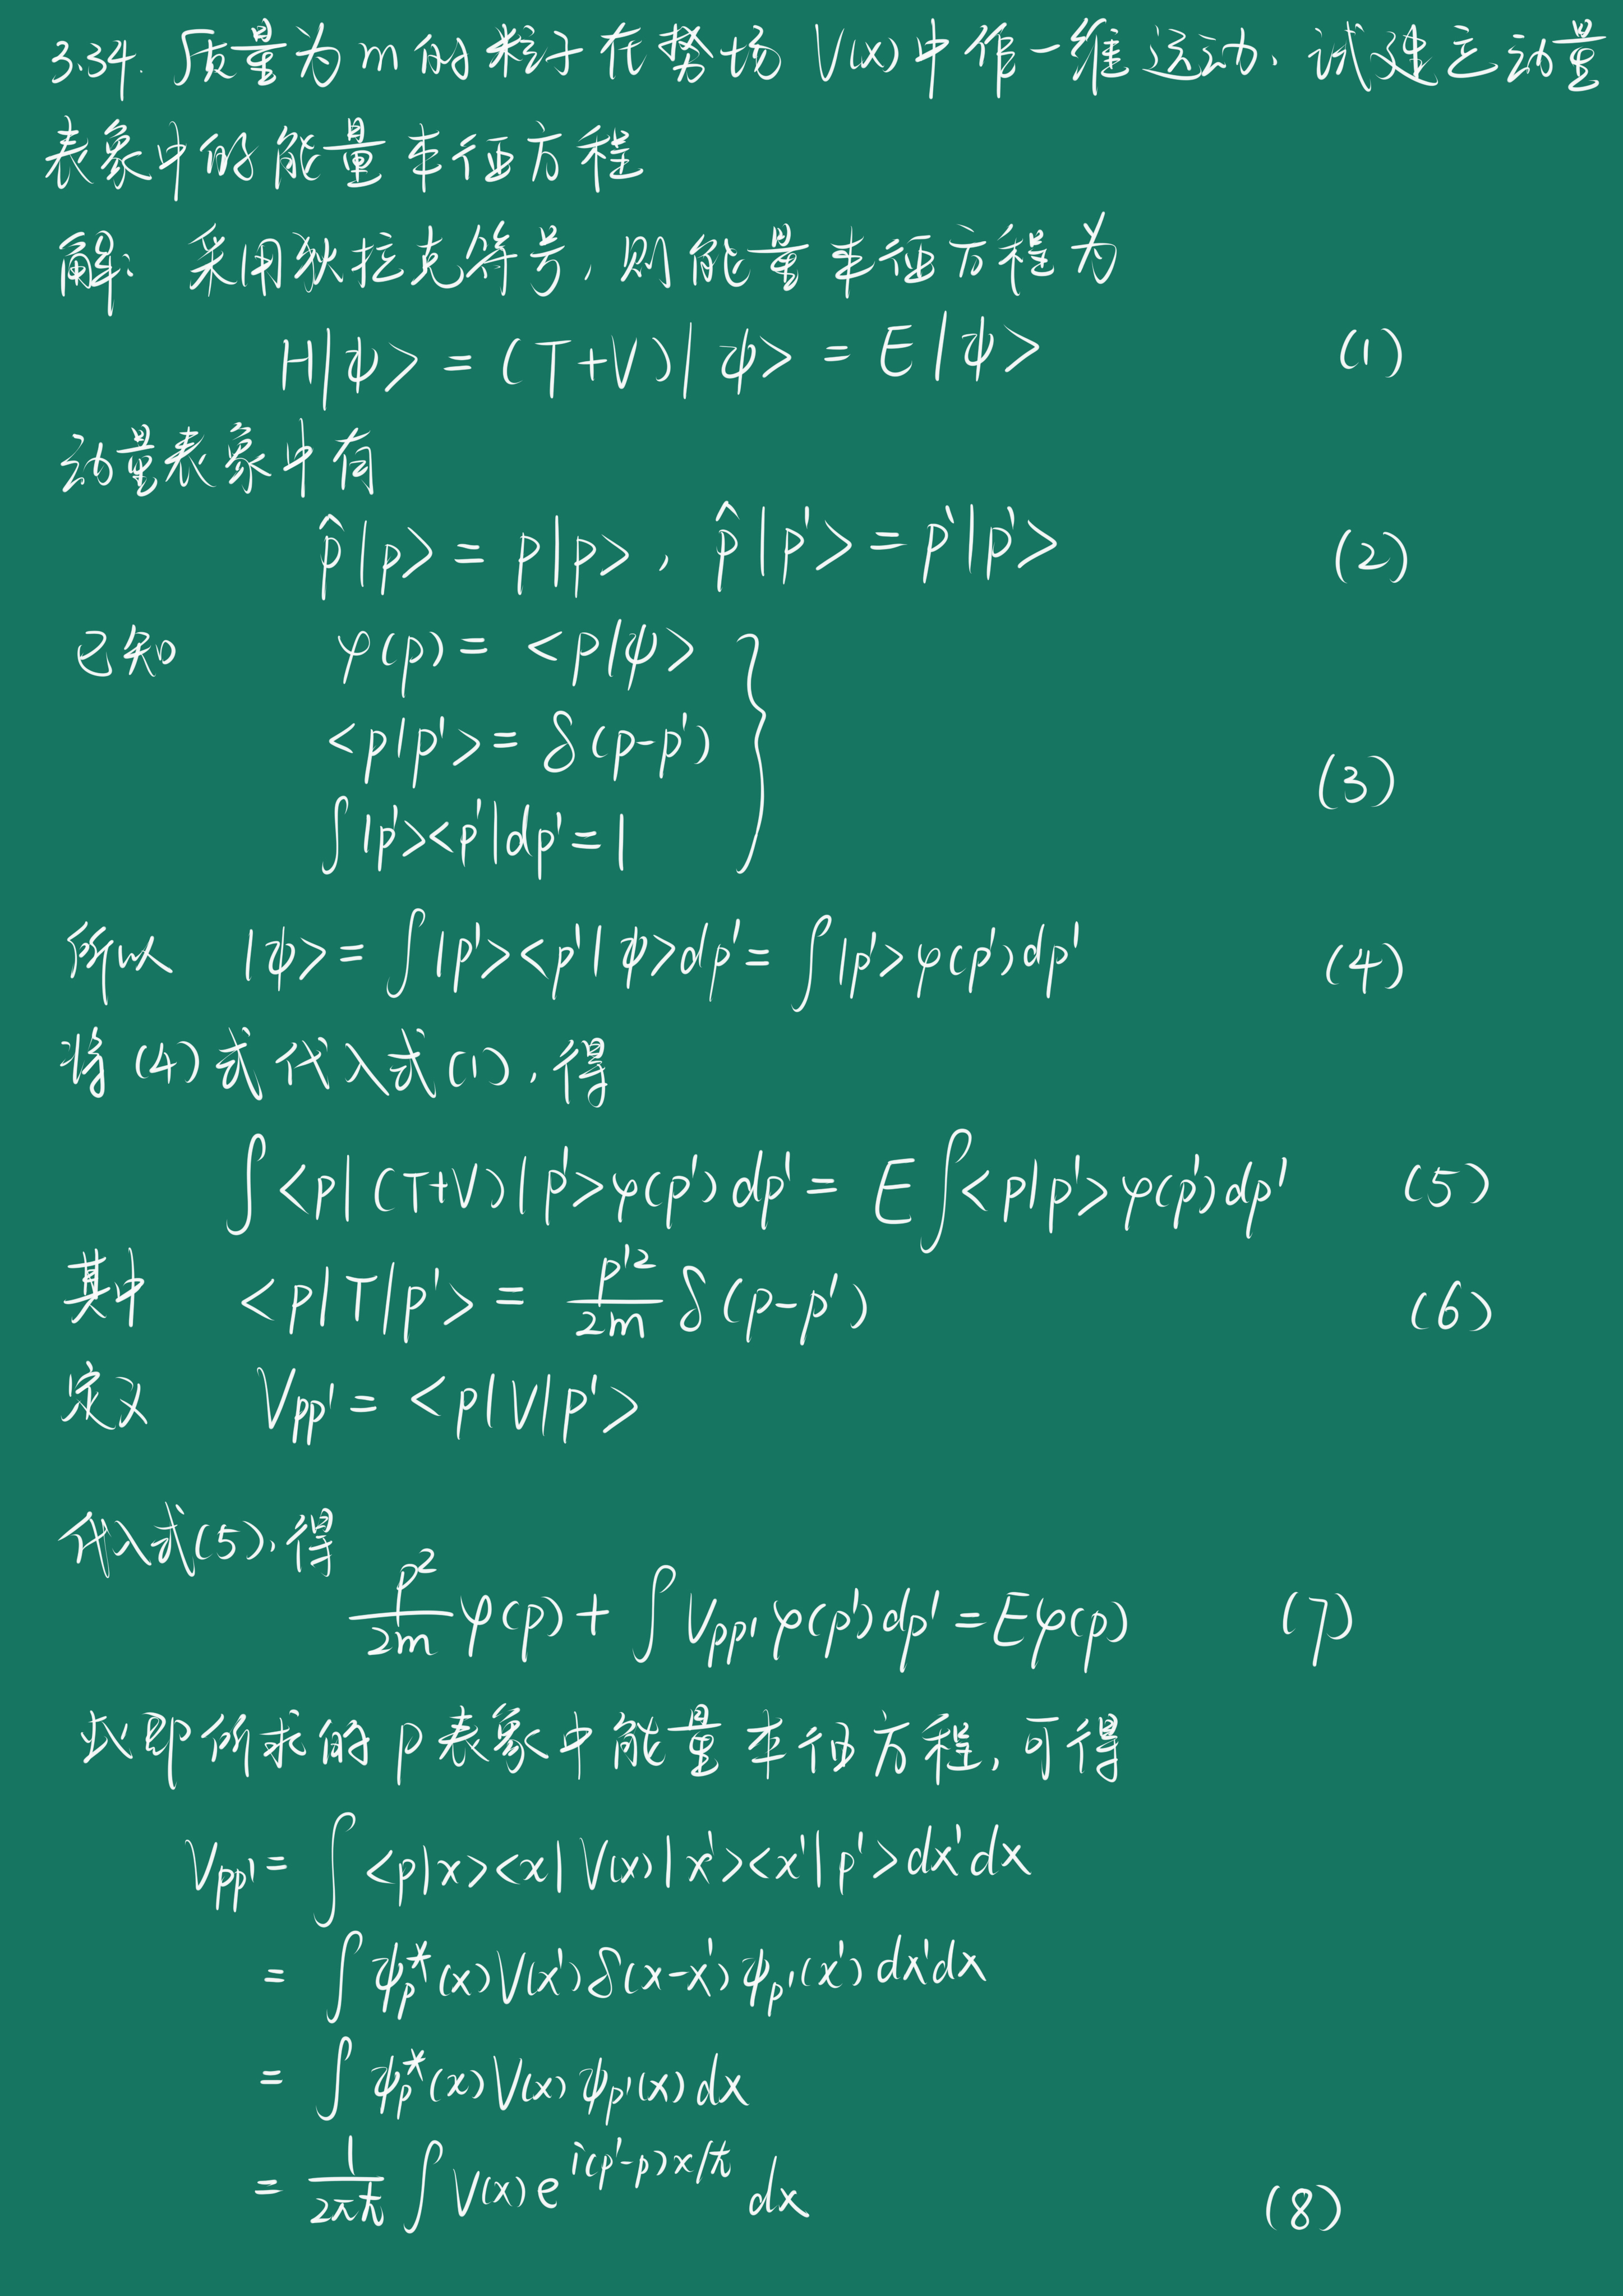 3.34. 质量为m的粒子在势场 V(x)中作一维运动、试建立动量
表象中的能量本征方程
解: 采用狄拉克符号,则能量本征方程为
H|ψ> = (T+V)|ψ> = E|ψ> (1)
动量表象中有
p̂|p> = p|p>, p̂|p'> = p'|p'> (2)
已知 φ(p) = <p|ψ>
<p|p'> = δ(p-p')
(3)
∫|p'><p'|dp' = 1
所以 |ψ> = ∫|p'><p'|ψ>dp' = ∫|p'>φ(p')dp' (4)
将(4)式代入式(1),得
∫<p|(T+V)|p'>φ(p')dp' = E∫<p|p'>φ(p')dp' (5)
其中 <p|T|p'> = p'²/2m δ(p-p') (6)
定义 Vpp' = <p|V|p'>
代入式(5),得
p²/2m φ(p) + ∫Vpp'φ(p')dp' = Eφ(p) (7)
此即所求的p表象中能量本征方程,可得
Vpp' = ∫<p|x><x|V(x)|x'><x'|p'>dx'dx
= ∫ψp*(x)V(x')δ(x-x')ψp'(x')dx'dx
= ∫ψp*(x)V(x)ψp'(x)dx
= 1/2πħ ∫V(x)e^{i(p'-p)x/ħ} dx (8)